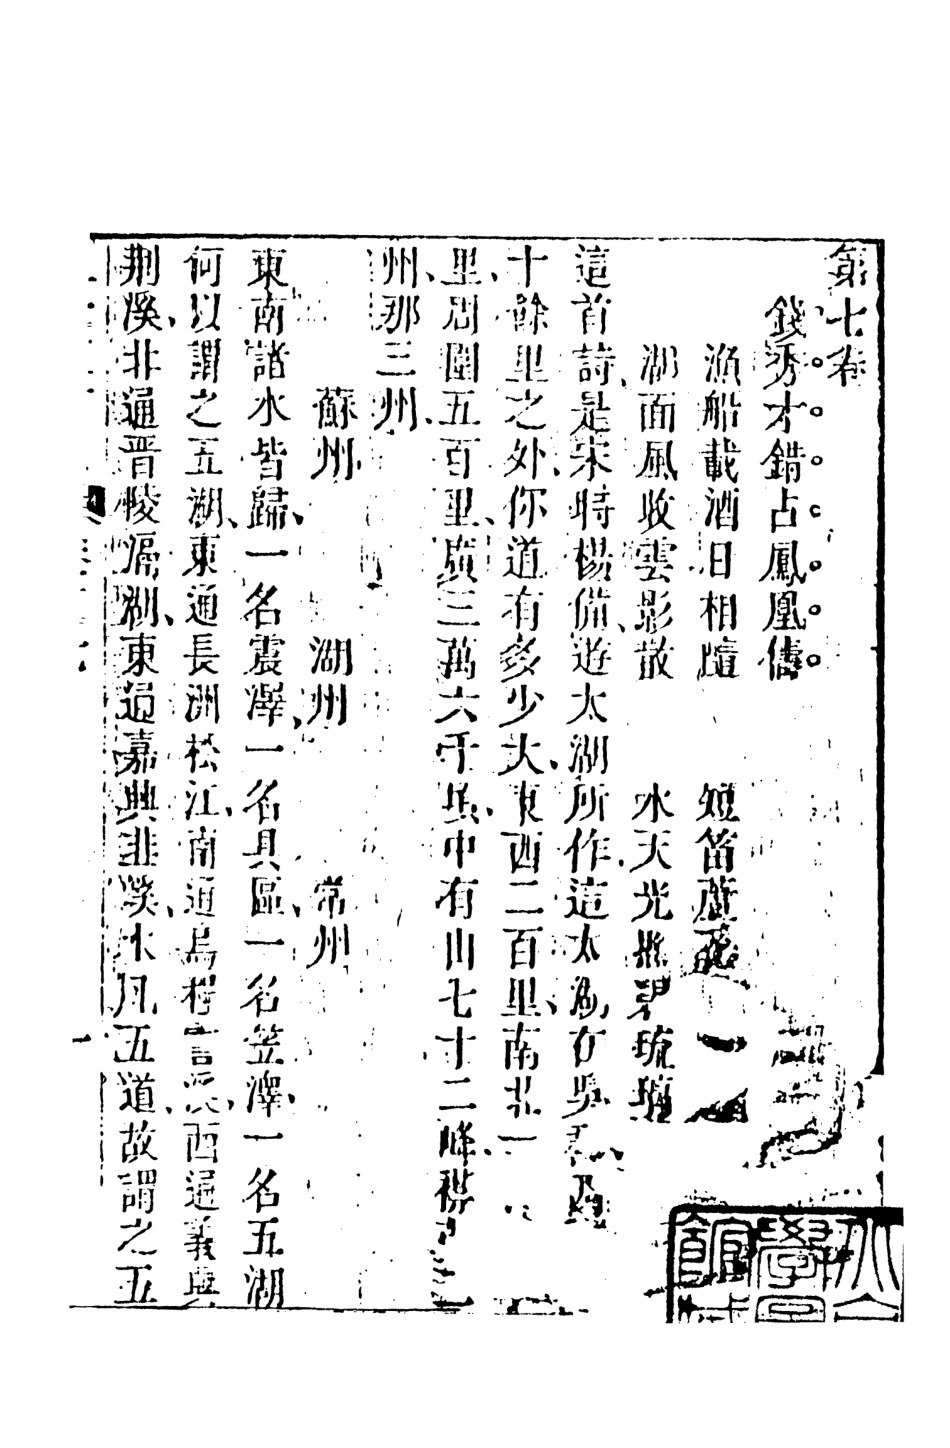 第七卷
錢秀才錯占鳳凰儔
漁船載酒日相隨 短笛蘆花
湖面風收雲影散 水天光照碧琉璃
這首詩是宋時楊備遊太湖所作這太湖在吳
十餘里之外你道有多少大東西二百里南北一
里周圍五百里廣三萬六千頃中有山七十二峰襟
州那三州
蘇州 湖州 常州
東南諸水皆歸一名震澤一名具區一名笠澤一名五湖
何以謂之五湖東通長洲松江南通烏程霅溪西通義興
荆溪北通晉陵滆湖東通嘉興韭溪水凡五道故謂之五